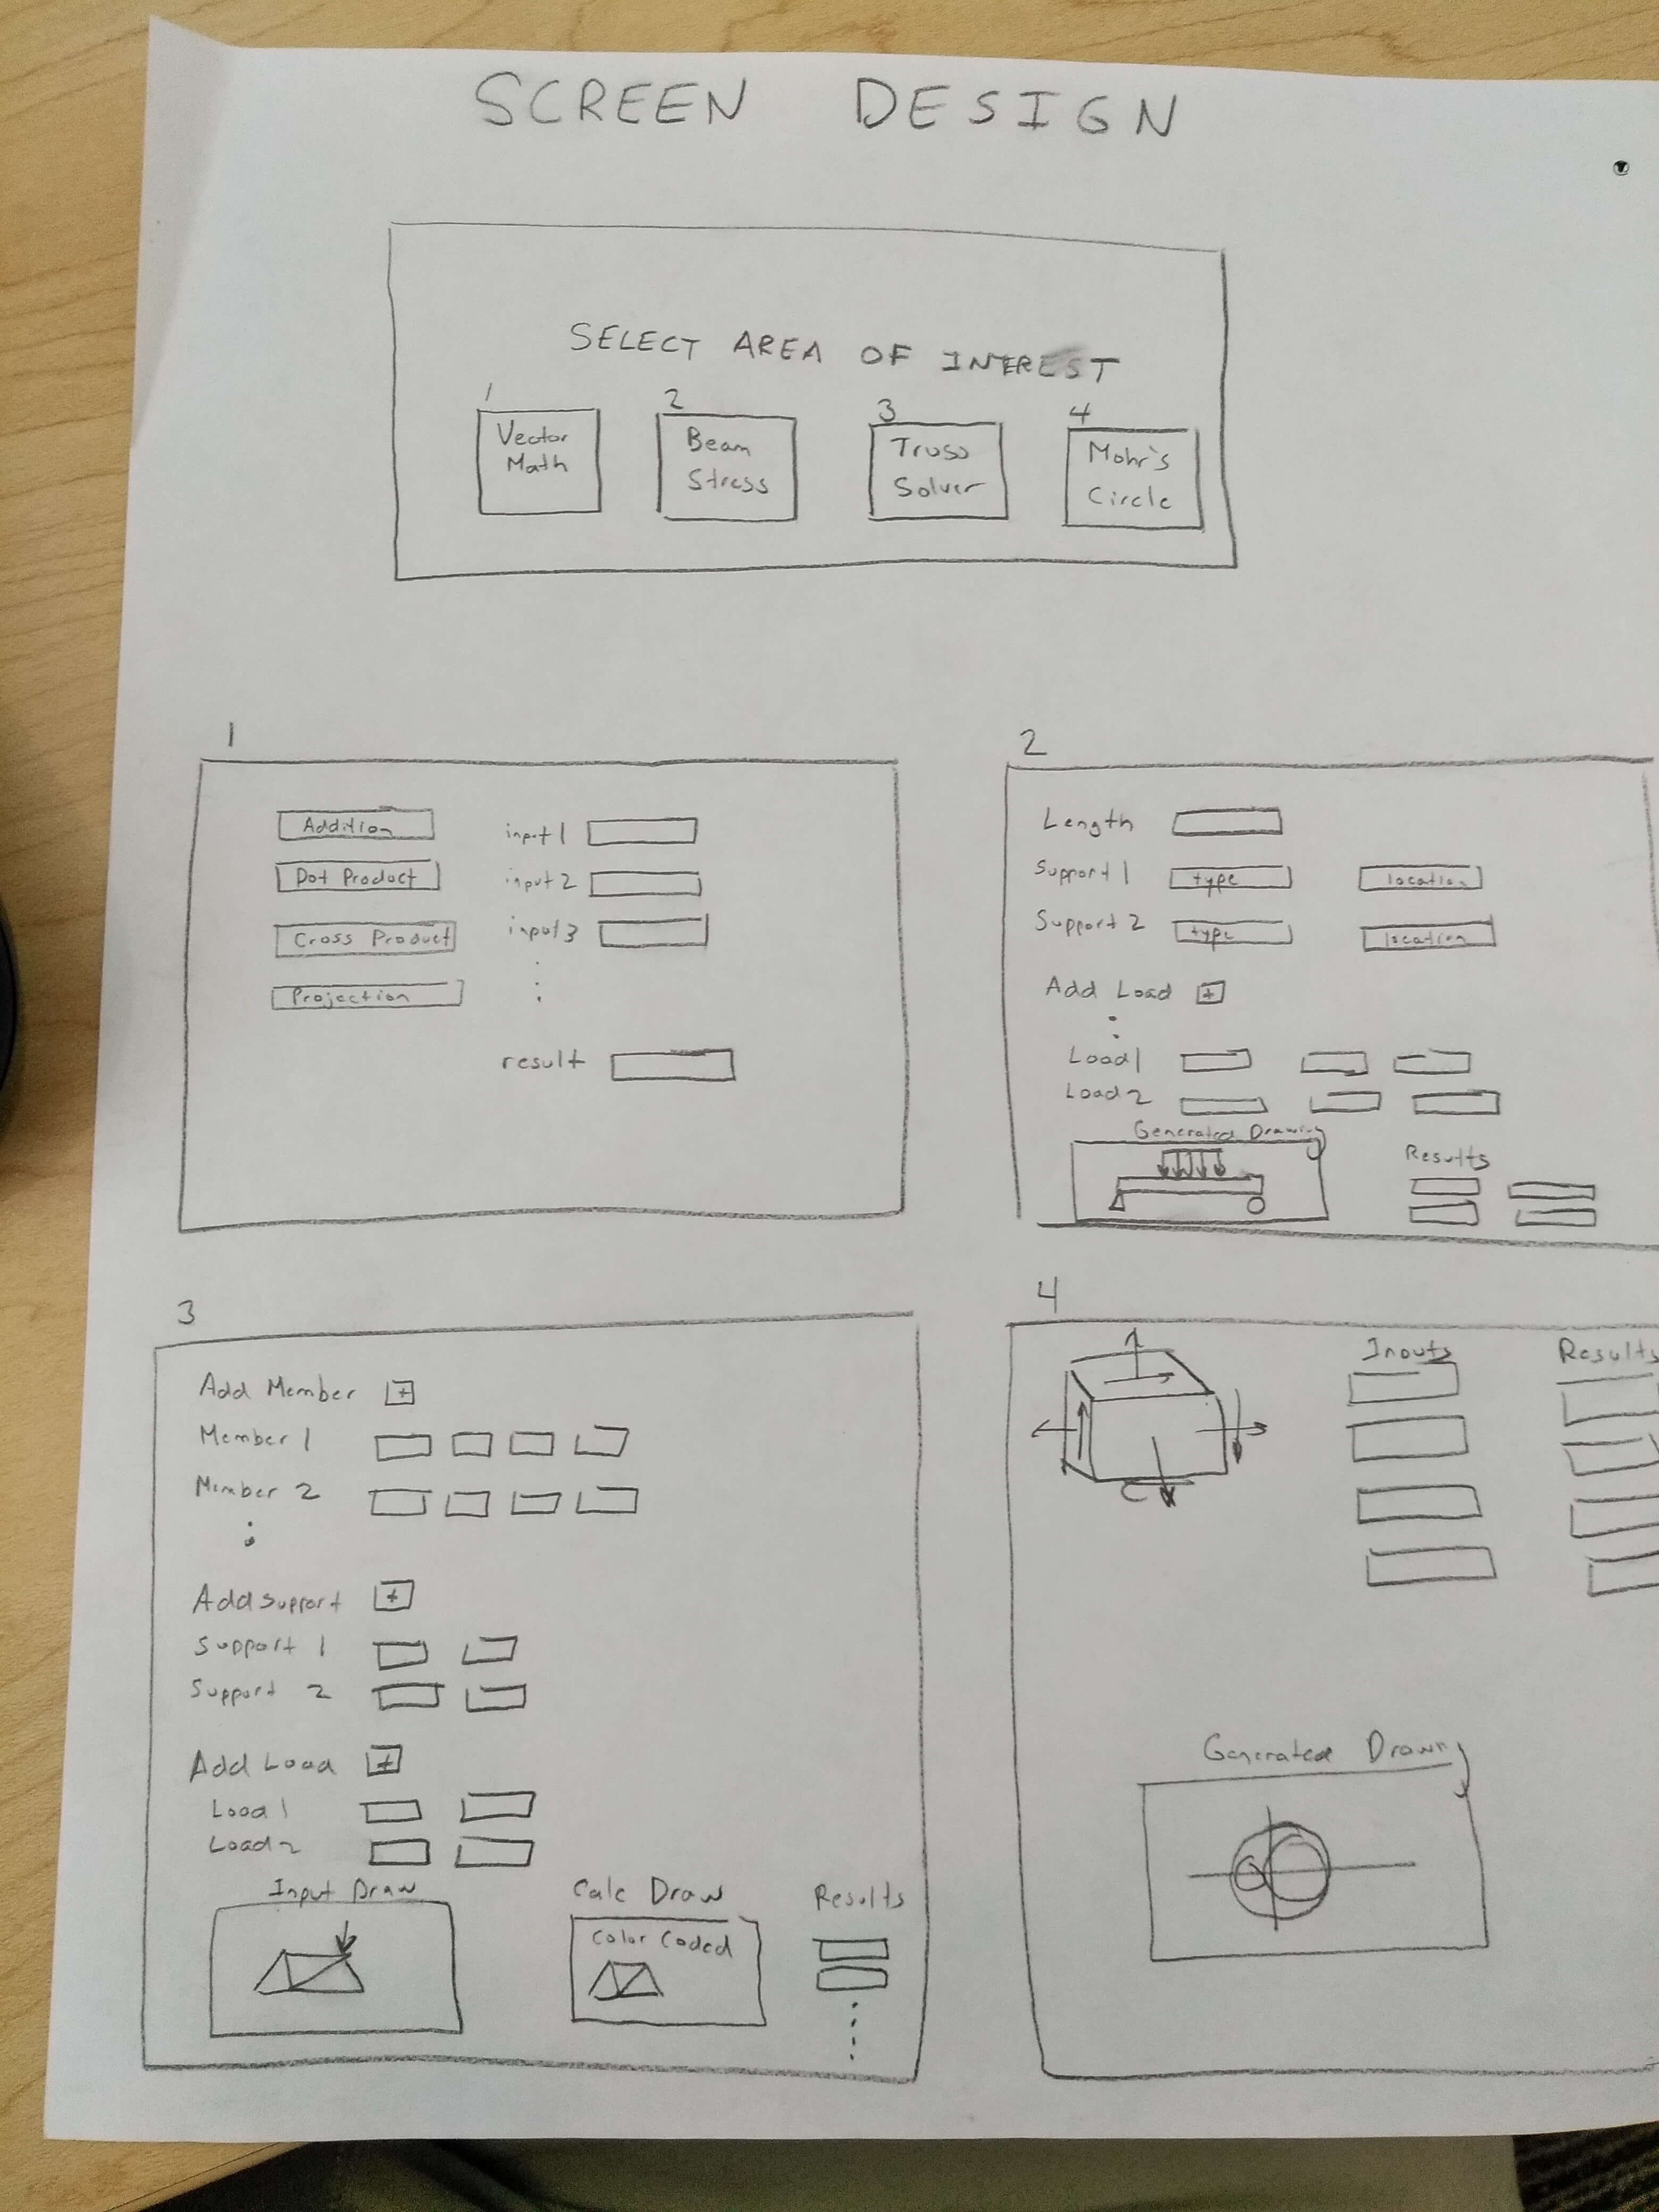 SCREEN DESIGN
SELECT AREA OF INTEREST
1 2 3 4
Vector Math
Beam Stress
Truss Solver
Mohr's Circle
1
Addition
Dot Product
Cross Product
Projection
input 1
input 2
input 3
result
2
Length
Support 1 type location
Support 2 type location
Add Load +
Load 1
Load 2
Generated Drawing
Results
3
Add Member +
Member 1
Member 2
Add Support +
Support 1
Support 2
Add Load +
Load 1
Load 2
Input Draw
Calc Draw
Color Coded
Results
4
Inputs
Results
Generated Drawing